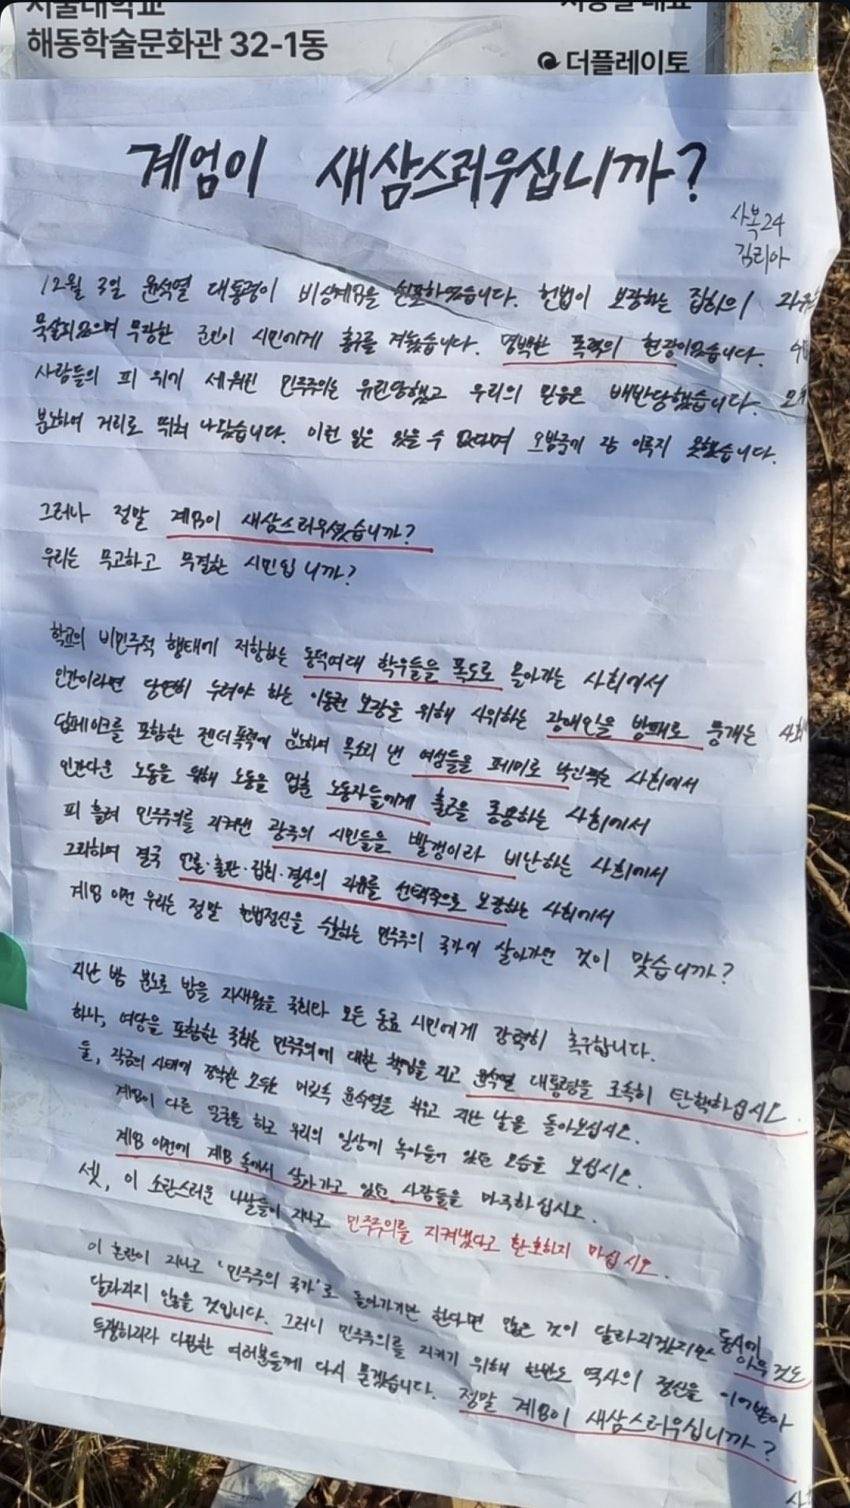 서울대학교
해동학술문화관 32-1동
더플레이토
계엄이 새삼스러우십니까?
사복24
김리아
12월 3일 윤석열 대통령이 비상계엄을 선포하였습니다. 헌법이 보장하는 집회의 자유
묵살되었으며 무장한 군인이 시민에게 총구를 겨눴습니다. 명백한 폭력의 현장이었습니다.
사람들의 피 위에 세워진 민주주의는 유린당했고 우리의 믿음은 배반당했습니다.
분노하여 거리로 뛰쳐 나갔습니다. 이런 일은 있을 수 없다며 오밤중에 잠 이루지 못했습니다.
그러나 정말 계엄이 새삼스러우셨습니까?
우리는 무고하고 무결한 시민입니까?
학교의 비민주적 행태에 저항하는 동덕여대 학우들을 폭도로 몰아가는 사회에서
인간이라면 당연히 누려야 하는 이동권 보장을 위해 시위하는 장애인을 방패로 뭉개는 사회
딥페이크를 포함한 젠더폭력에 분노하여 목소리 낸 여성들을 페미로 낙인찍는 사회에서
인간다운 노동을 위해 노동을 멈춘 노동자들에게 출근을 종용하는 사회에서
피 흘려 민주주의를 지켜낸 광주의 시민들을 빨갱이라 비난하는 사회에서
그리하여 결국 언론·출판·집회·결사의 자유를 선택적으로 보장하는 사회에서
계엄 이전 우리는 정말 헌법정신을 수호하는 민주주의 국가에 살아가던 것이 맞습니까?
지난 밤 분노로 밤을 지새웠을 국회와 모든 동료 시민에게 강력히 촉구합니다.
하나, 여당을 포함한 국회는 민주주의에 대한 책임을 지고 윤석열 대통령을 조속히 탄핵하십시오.
둘, 작금의 사태에 경악한 모두는 머릿속 윤석열을 치우고 지난 날을 돌아보십시오.
계엄이 다른 얼굴을 하고 우리의 일상에 녹아들어 있던 모습을 보십시오.
계엄 이전에 계엄 속에서 살아가고 있던 사람들을 마주하십시오.
셋, 이 소란스러운 나날들이 지나고 민주주의를 지켜냈다고 환호하지 마십시오.
이 혼란이 지나고 '민주주의 국가'로 돌아가기만 한다면 많은 것이 달라지겠지만 동시에 아무것도
달라지지 않을 것입니다. 그러니 민주주의를 지키기 위해 한반도 역사의 정신을 이어받아
투쟁하리라 다짐한 여러분들께 다시 묻겠습니다. 정말 계엄이 새삼스러우십니까?